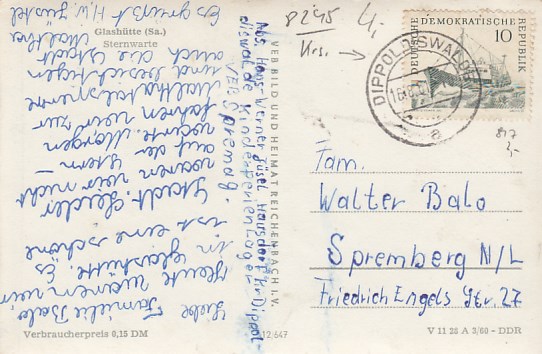 Glashütte (Sa.)
Sternwarte
Liebe Familie Balo
Heute waren wir
in Glashütte. Es
ist eine schöne
Stadt. Leider
waren wir nicht
auf der Stern-
warte. Morgen
fahren wir zur
und besichtigen
auch die Stadt
Es grüsst H. W. Güsel
Abs. Hans-Werner Güsel Hausdorf Kr. Dippol-
diswalde Kinderferienlager
VEB Spremag.
VEB BILD UND HEIMAT REICHENBACH I. V.
8245
Krs.
DEUTSCHE DEMOKRATISCHE REPUBLIK
10
DIPPOLDISWALDE
a
Fam.
Walter Balo
Spremberg N/L
Friedrich Engels Str. 27
Verbraucherpreis 0,15 DM
12/647
V 11 28 A 3/60 - DDR